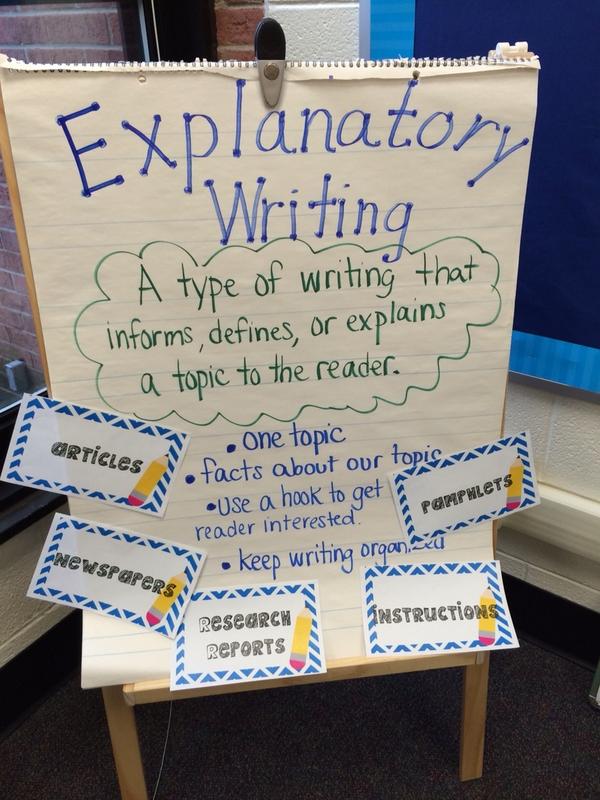 Explanatory
Writing
A type of writing that
informs, defines, or explains
a topic to the reader.
• one topic
• facts about our topic
• use a hook to get
reader interested.
• keep writing organized
articles
Pamphlets
Newspapers
Research
Reports
instructions